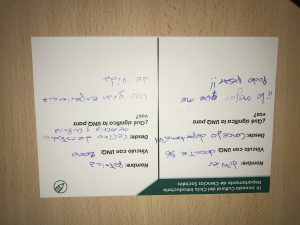 IV Jornada Cultural del Ciclo Introductorio
Departamento de Ciencias Sociales
Nombre: Javier
Vínculo con UNQ: docente 96
Desde: Consejo departamental
¿Qué significa la UNQ para
vos?
¡¡Lo mejor que me
Pudo pasar!!
Nombre: Patricia
Vínculo con UNQ: 2000
Desde: Centro de estudios
¿Qué significa la UNQ para
vos?
Una gran experiencia
de vida